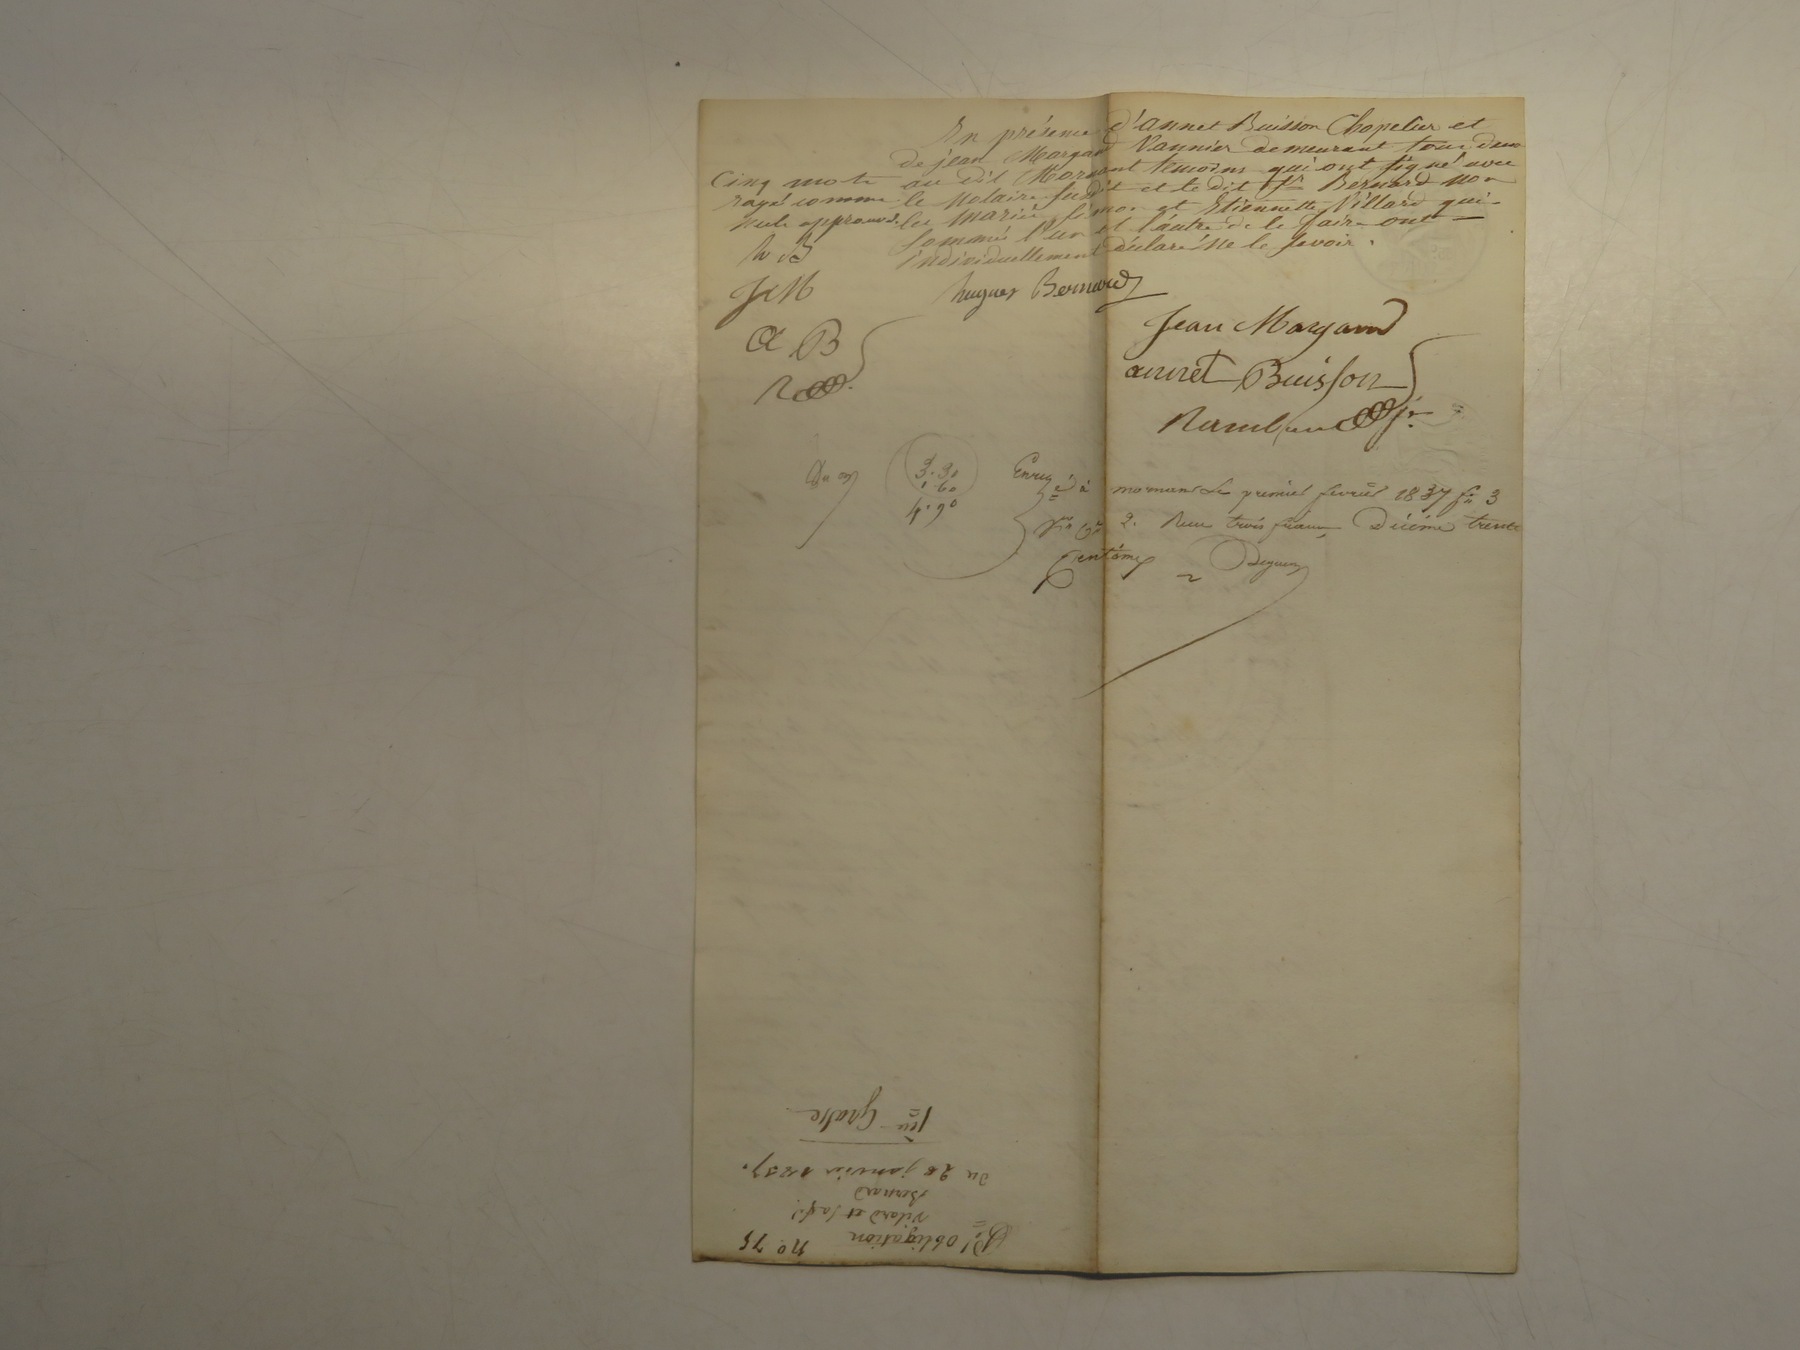 En présence d'annet Buisson Chapelier et
de jean Morgand Vannier demeurant tous deux
au dit Mornant témoins qui ont signé avec
le Notaire susdit et le dit Sr Bernard non
les Mariés Simon et Etiennette Villard qui
sommés l'un et l'autre de le faire ont
individuellement déclaré ne le savoir.
Cinq mots
rayé comme
nuls approuvé.
h B
J M
a B
hugues Bernard
Jean Morgand
annet Buisson
3.30
1.60
4.90
Enregé à mornant le premier fevrier 1837 fo 3
vo Ce 2. Reçu trois francs Décime trente
Centimes
no. 75
Obligation
Vilard et
Bernard
du 28 janvier 1837.
1ere Grosse